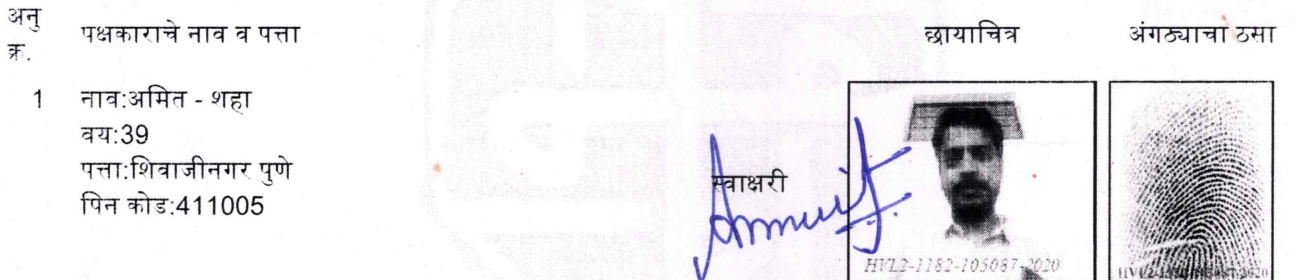 अनु क्र. पक्षकाराचे नाव व पत्ता छायाचित्र अंगठ्याचा ठसा
1 नाव:अमित - शहा
वय:39
पत्ता:शिवाजीनगर पुणे
पिन कोड:411005
स्वाक्षरी
HVL2-1182-105087-2020